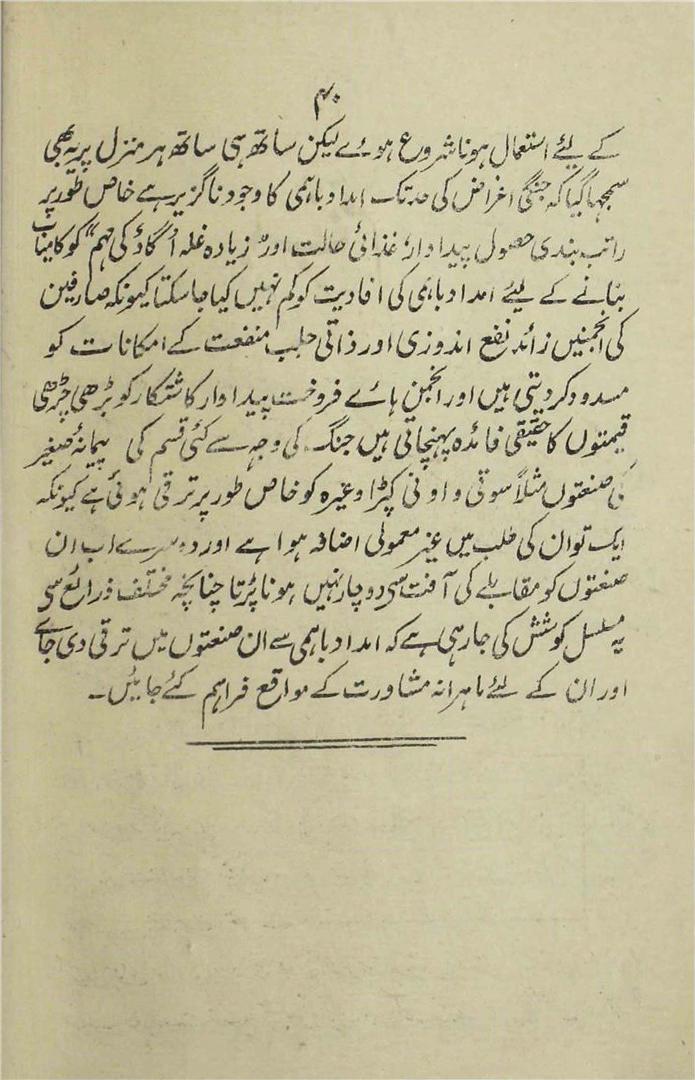 ۴۰
کے لئے استعمال ہونا شروع ہوے لیکن ساتھ ہی ساتھ ہر منزل پر یہ بھی
سمجھا گیا کہ جنگی اغراض کی حد تک امداد باہمی کا وجود ناگزیر ہے خاص طور پر
راتب بندی حصول پیداوار غذائی حالت اور "زیادہ غلہ اُگاؤ کی مہم" کو کامیاب
بنانے کے لیئے امداد باہمی کی افادیت کو کم نہیں کیا جا سکتا کیونکہ صارفین
کی انجمنیں زائد نفع اندوزی اور ذاتی جلب منفعت کے امکانات کو
مسدود کر دیتی ہیں اور انجمن ہاے فروخت پیداوار کاشتکار کو بڑھی چڑھی
قیمتوں کا حقیقی فائدہ پہنچاتی ہیں جنگ کی وجہ سے کئی قسم کی پیمانۂ صغیر
کی صنعتوں مثلاً سوتی و اونی کپڑا وغیرہ کو خاص طور پر ترقی ہوئی ہے کیونکہ
ایک تو ان کی طلب میں غیر معمولی اضافہ ہوا ہے اور دوسرے اب ان
صنعتوں کو مقابلے کی آفت سی دوچار نہیں ہونا پڑتا چنانچہ مختلف ذرائع سی
یہ مسلسل کوشش کی جا رہی ہے کہ امداد باہمی سے ان صنعتوں میں ترقی دی جاے
اور ان کے لئے ماہرانہ مشاورت کے مواقع فراہم کئے جائیں۔